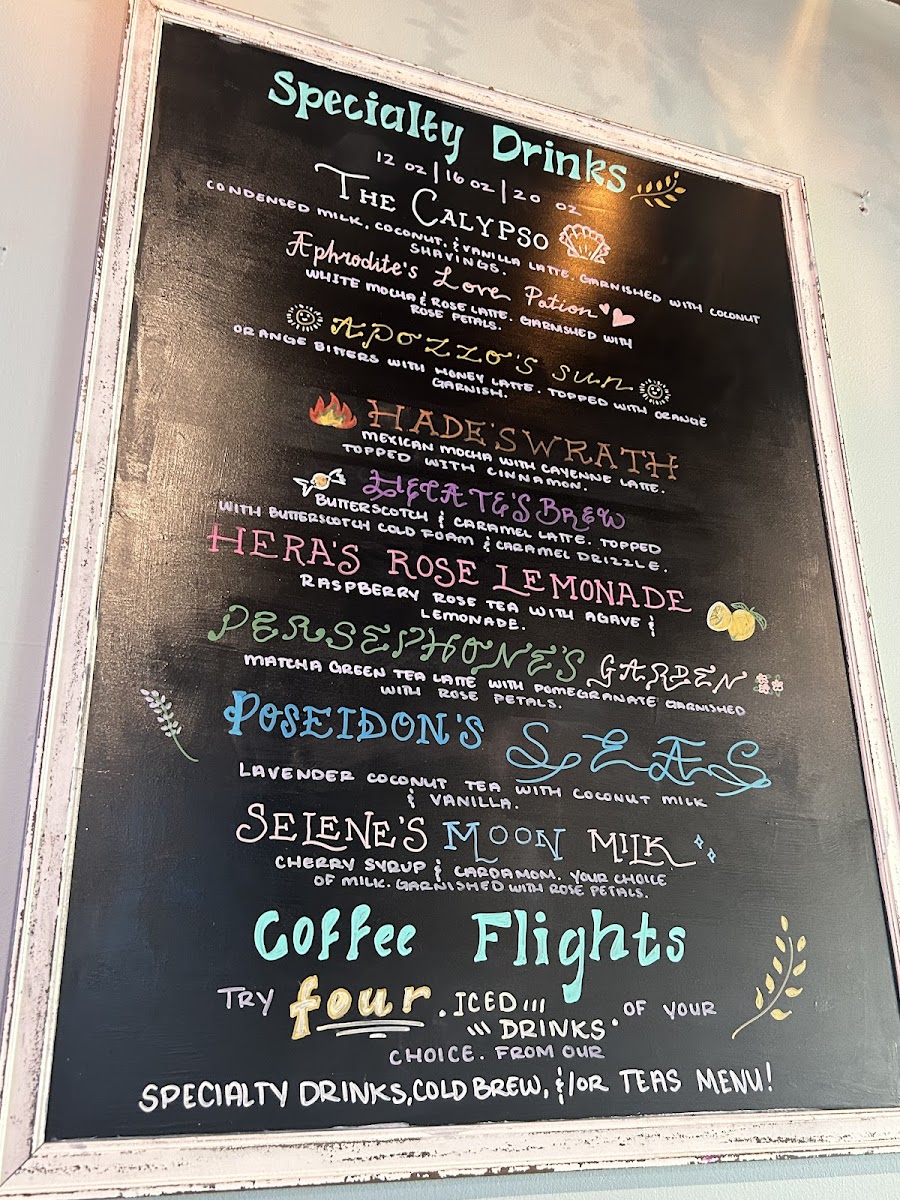 Specialty Drinks
12 oz | 16 oz | 20 oz
THE CALYPSO
CONDENSED MILK, COCONUT, & VANILLA LATTE. GARNISHED WITH COCONUT
SHAVINGS.
Aphrodite's Love Potion
WHITE MOCHA & ROSE LATTE. GARNISHED WITH
ROSE PETALS.
APOLLO'S SUN
ORANGE BITTERS WITH HONEY LATTE. TOPPED WITH ORANGE
GARNISH.
HADE'S WRATH
MEXICAN MOCHA WITH CAYENNE LATTE.
TOPPED WITH CINNAMON.
HECATE'S BREW
BUTTERSCOTCH & CARAMEL LATTE. TOPPED
WITH BUTTERSCOTCH COLD FOAM & CARAMEL DRIZZLE.
HERA'S ROSE LEMONADE
RASPBERRY ROSE TEA WITH AGAVE &
LEMONADE.
PERSEPHONE'S GARDEN
MATCHA GREEN TEA LATTE WITH POMEGRANATE GARNISHED
WITH ROSE PETALS.
POSEIDON'S SEAS
LAVENDER COCONUT TEA WITH COCONUT MILK
& VANILLA.
SELENE'S MOON MILK
CHERRY SYRUP & CARDAMOM. YOUR CHOICE
OF MILK. GARNISHED WITH ROSE PETALS.
Coffee Flights
TRY four ICED DRINKS OF YOUR
CHOICE. FROM OUR
SPECIALTY DRINKS, COLD BREW, &/OR TEAS MENU!